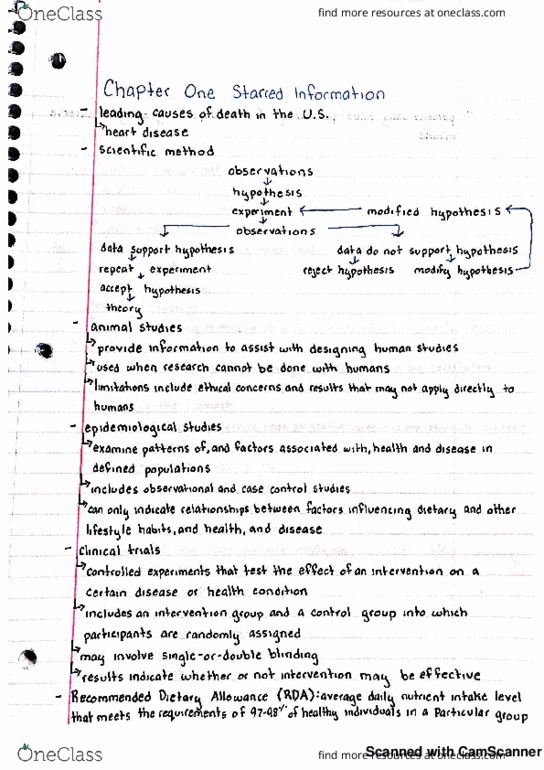 OneClass
find more resources at oneclass.com
Chapter One Starred Information
- leading causes of death in the U.S.
↳ heart disease
- scientific method
observations
↓
hypothesis
↓
experiment ← modified hypothesis ←
↓
observations
data support hypothesis data do not support hypothesis
repeat ↓ experiment reject hypothesis modify hypothesis
accept ↓ hypothesis
theory
- animal studies
↳ provide information to assist with designing human studies
↳ used when research cannot be done with humans
↳ limitations include ethical concerns and results that may not apply directly to
humans
- epidemiological studies
↳ examine patterns of, and factors associated with, health and disease in
defined populations
↳ includes observational and case control studies
↳ can only indicate relationships between factors influencing dietary and other
lifestyle habits, and health, and disease
- clinical trials
↳ controlled experiments that test the effect of an intervention on a
certain disease or health condition
↳ includes an intervention group and a control group into which
participants are randomly assigned
↳ may involve single-or-double blinding
↳ results indicate whether or not intervention may be effective
- Recommended Dietary Allowance (RDA): average daily nutrient intake level
that meets the requirements of 97-98% of healthy individuals in a particular group
OneClass
find more resources at oneclass.com
Scanned with CamScanner